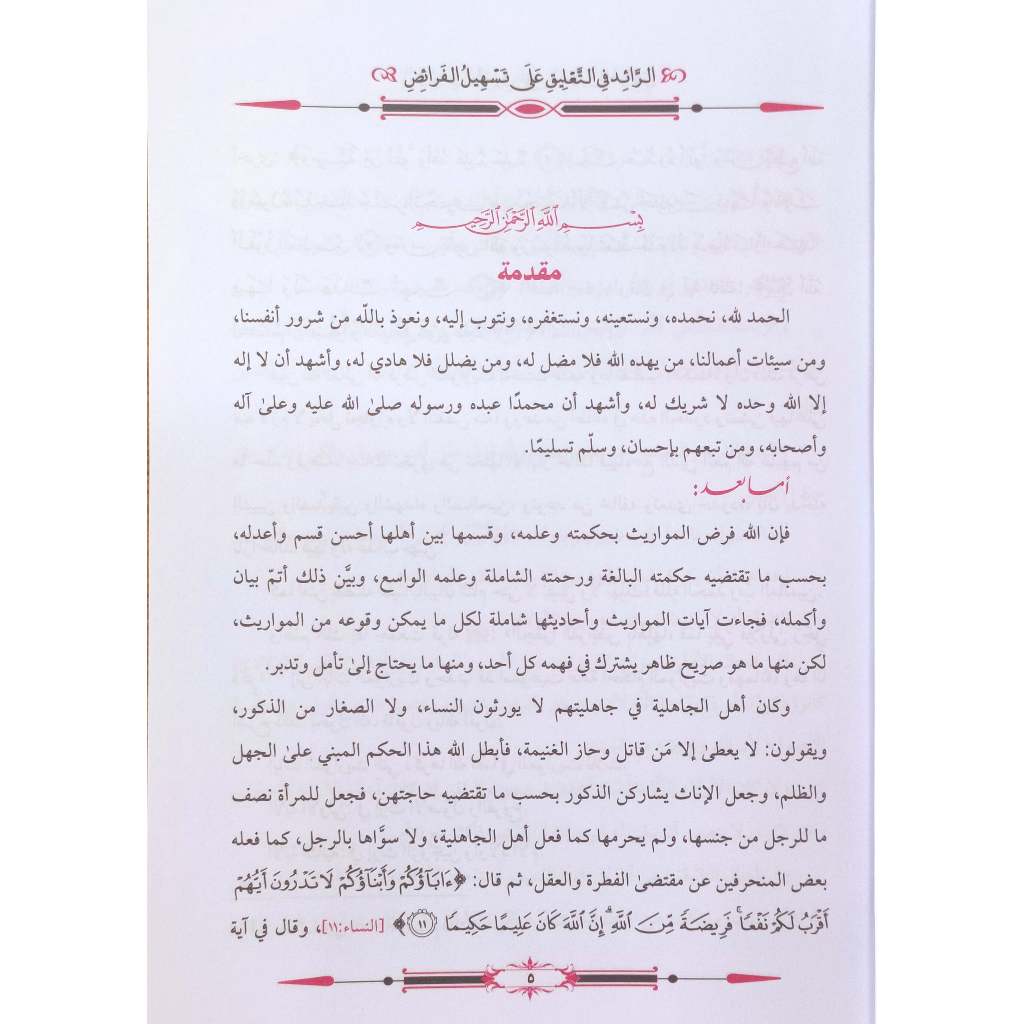 الرَّائِد فِي التَّعْلِيقِ عَلَى تَسْهِيلُ الفَرَائِضِ
بِسْمِ ٱللَّهِ ٱلرَّحْمَٰنِ ٱلرَّحِيمِ
مقدمة
الحمد لله، نحمده، ونستعينه، ونستغفره، ونتوب إليه، ونعوذ باللّه من شرور أنفسنا،
ومن سيئات أعمالنا، من يهده الله فلا مضل له، ومن يضلل فلا هادي له، وأشهد أن لا إله
إلا الله وحده لا شريك له، وأشهد أن محمدًا عبده ورسوله صلىٰ الله عليه وعلىٰ آله
وأصحابه، ومن تبعهم بإحسان، وسلّم تسليمًا.
أما بعد:
فإن الله فرض المواريث بحكمته وعلمه، وقسمها بين أهلها أحسن قسم وأعدله،
بحسب ما تقتضيه حكمته البالغة ورحمته الشاملة وعلمه الواسع، وبيَّن ذلك أتمّ بيان
وأكمله، فجاءت آيات المواريث وأحاديثها شاملة لكل ما يمكن وقوعه من المواريث،
لكن منها ما هو صريح ظاهر يشترك في فهمه كل أحد، ومنها ما يحتاج إلىٰ تأمل وتدبر.
وكان أهل الجاهلية في جاهليتهم لا يورثون النساء، ولا الصغار من الذكور،
ويقولون: لا يعطىٰ إلا مَن قاتل وحاز الغنيمة، فأبطل الله هذا الحكم المبني علىٰ الجهل
والظلم، وجعل الإناث يشاركن الذكور بحسب ما تقتضيه حاجتهن، فجعل للمرأة نصف
ما للرجل من جنسها، ولم يحرمها كما فعل أهل الجاهلية، ولا سوَّاها بالرجل، كما فعله
بعض المنحرفين عن مقتضىٰ الفطرة والعقل، ثم قال: ﴿ءَابَآؤُكُمْ وَأَبْنَآؤُكُمْ لَا تَدْرُونَ أَيُّهُمْ
أَقْرَبُ لَكُمْ نَفْعًاۚ فَرِيضَةً مِّنَ ٱللَّهِۗ إِنَّ ٱللَّهَ كَانَ عَلِيمًا حَكِيمًا ١١﴾ [النساء:١١]، وقال في آية
٥